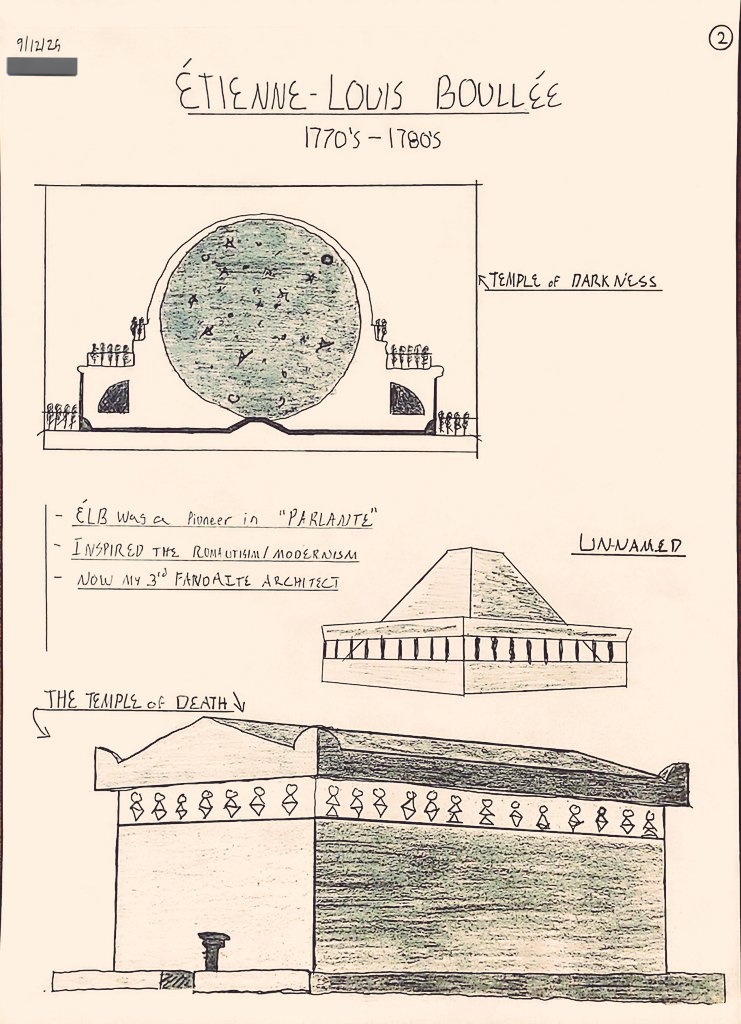 9/12/25
2
ÉTIENNE-LOUIS BOULLÉE
1770'S - 1780'S
TEMPLE of DARKNESS
- ÉLB was a Pioneer in "PARLANTE"
- INSPIRED THE ROMAUTISIM/MODERNISM
- NOW MY 3rd FAVOAITE ARCHITECT
UN-NAMED
THE TEMPLE of DEATH